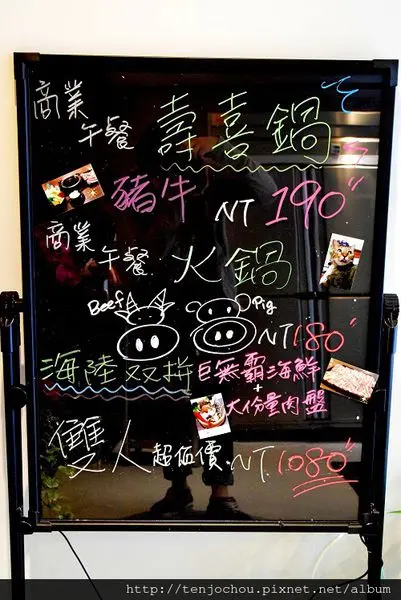 商業
午餐 壽喜鍋
豬牛 NT 190
商業
午餐 火鍋
Beef Pig
NT 180
海陸双拚 巨無霸海鮮
+
大份量肉盤
雙人 超值價 NT. 1080
http://tenjochou.pixnet.net/album